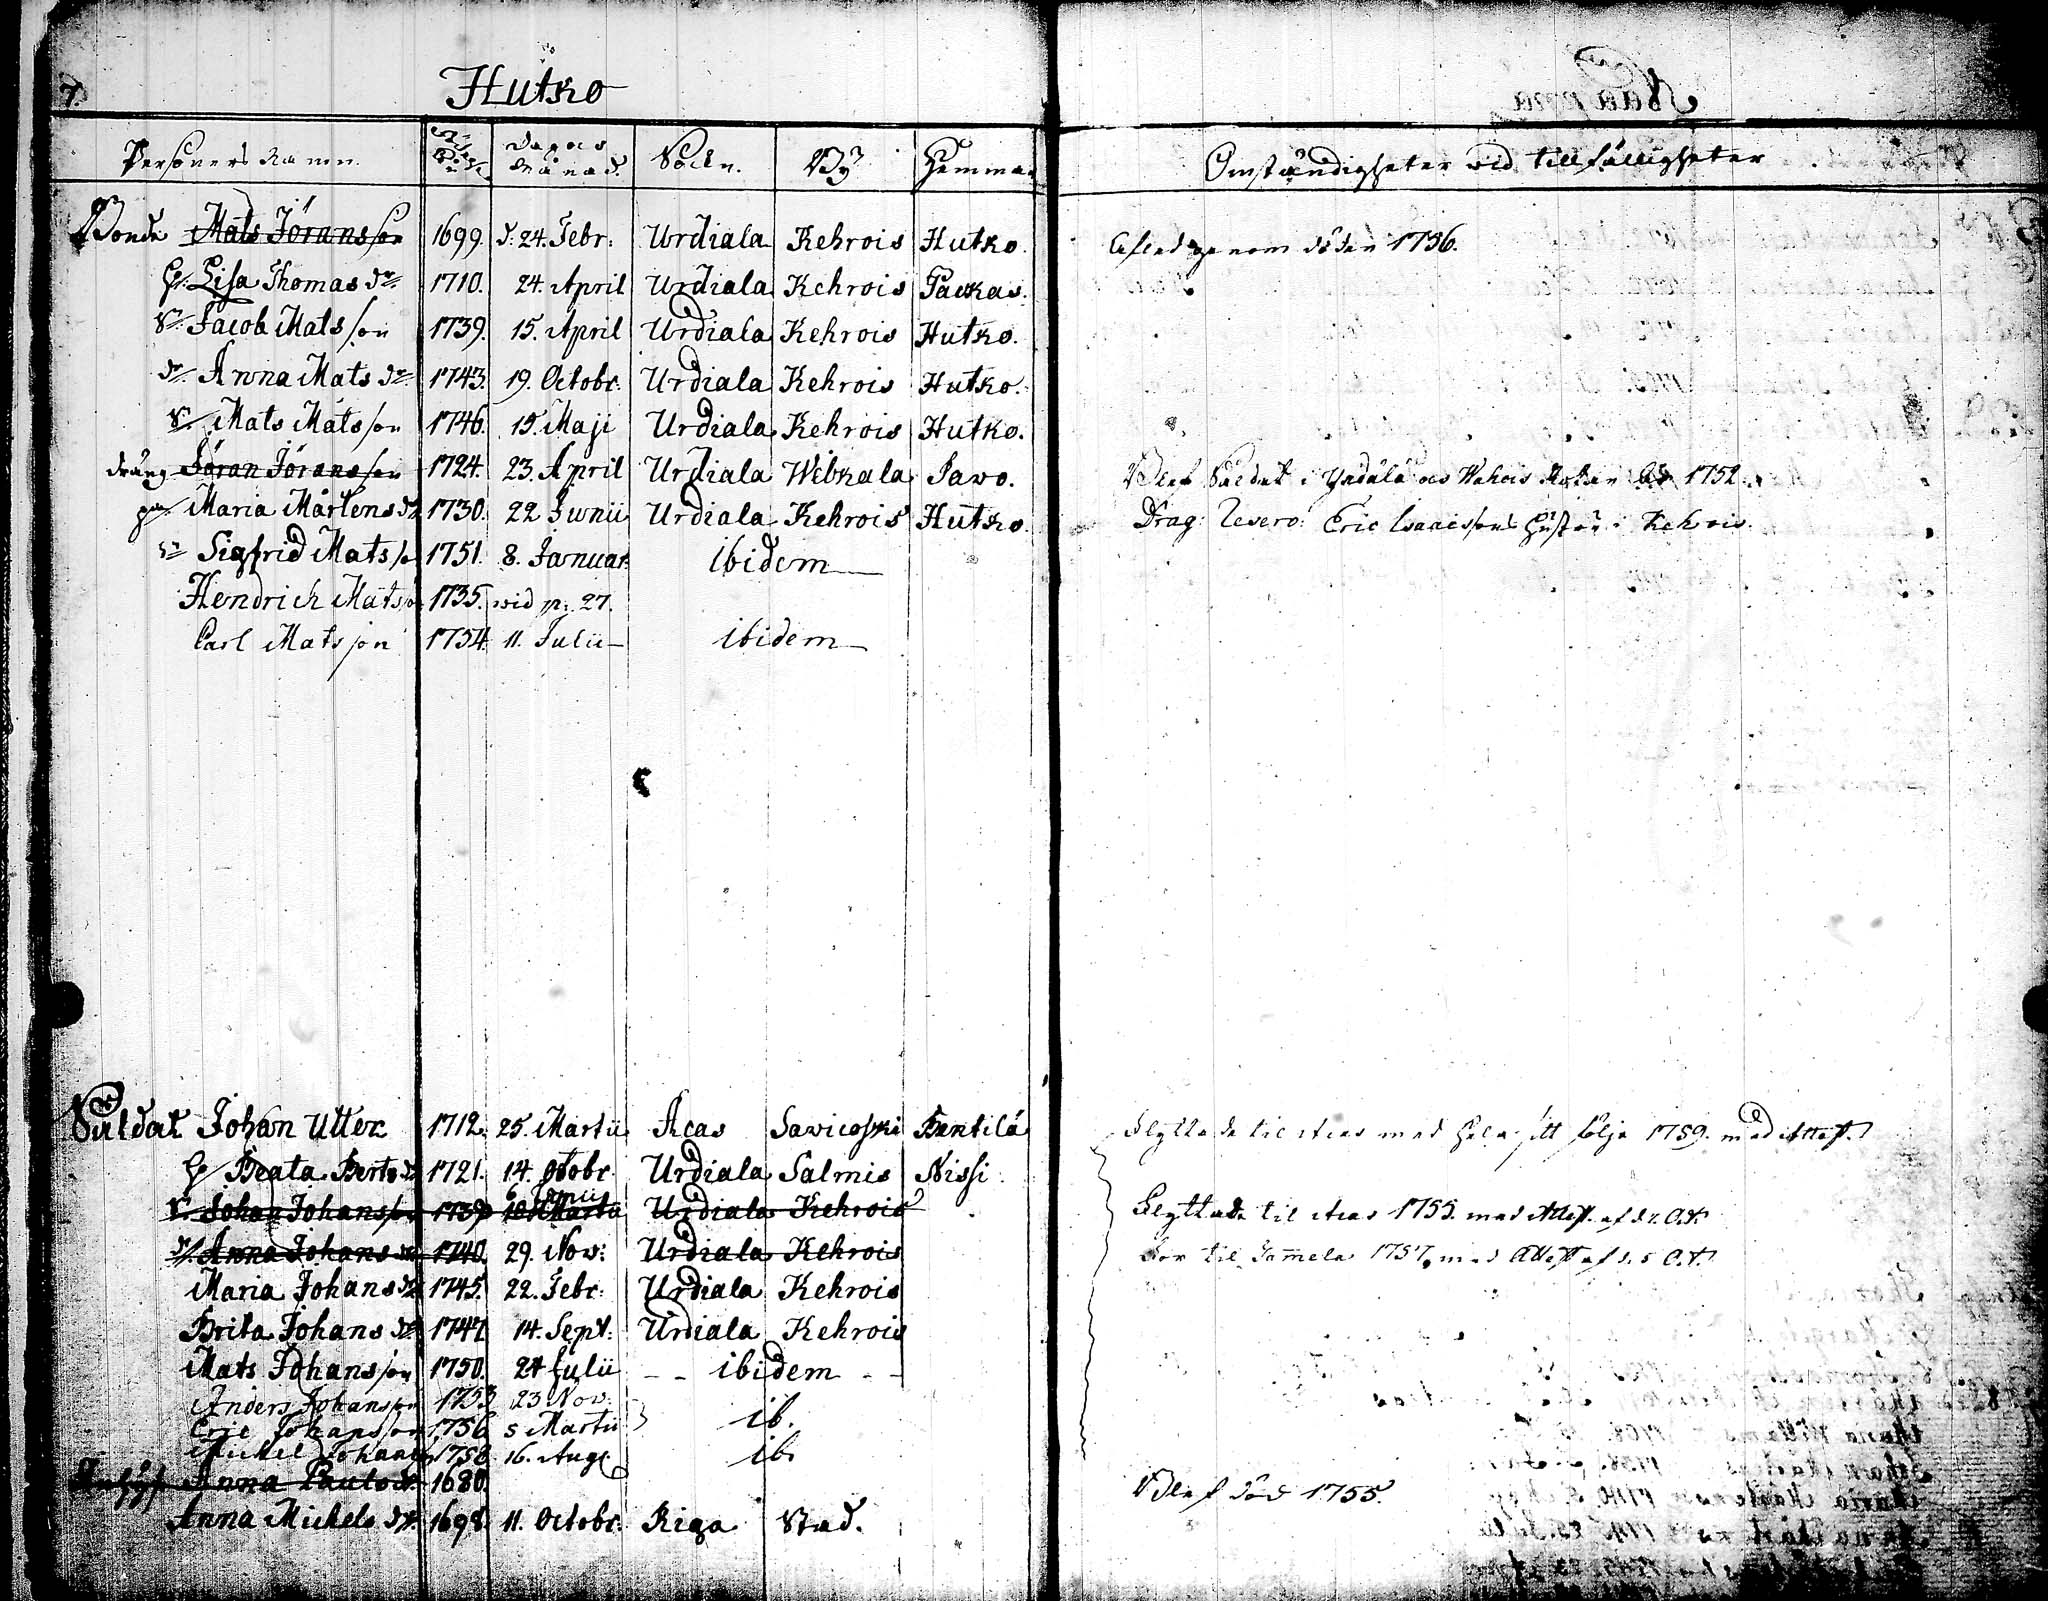 7.
Hutko
Persones Namn. Dagar Månad. Sockn. By Hemman Omständigheter vid tillfälligheter
Bonde Mats Jöransson 1699. d: 24. Febr: Urdiala Kehrois Hutko. Afled genom döden 1756.
H. Lisa Thomas dr. 1710. 24. April Urdiala Kehrois Packas.
S. Jacob Matsson 1739. 15. April Urdiala Kehrois Hutko.
dr. Anna Mats dr. 1743. 19. Octobr. Urdiala Kehrois Hutko.
S. Mats Matsson 1746. 15. Maji Urdiala Kehrois Hutko.
dräng Jöran Jöransson 1724. 23. April Urdiala Webkala Javo. Blef Soldat i 1752.
Maria Mårtens dr 1730. 22 Junii Urdiala Kehrois Hutko. Drag: Resero: Eric Isaacssons Hustru i Kehrois.
Sn Sigfrid Matsso 1751. 8. Januar. ibidem
Hendrich Matsso 1735. vid p: 27.
Carl Matsson 1754. 11. Julii ibidem
Soldat Johan Utter 1712. 25. Martii Acas Savicoski Bentilä Flyttade til Acas med hela sitt följe 1759. med Attest.
H Beata Berts dr 1721. 14. Octobr. Urdiala Salmis Nissi.
6. Junii
S. Johan Johansson 1739 Martii Urdiala Kehrois Flyttade til Acas 1755. med Attest. af d. 2. Oct.
dr. Anna Johans dr 1740. 29. Nov: Urdiala Kehrois For til Jammela 1757. med Attest af d. 5 Oct.
Maria Johans dr 1745. 22. Febr: Urdiala Kehrois
Brita Johans dr 1747 14. Sept: Urdiala Kehrois
Mats Johansson 1750. 24 Julii ibidem
Anders Johansson 1753 23 Nov:
Eric Johansson 1756. 5 Martii ib.
Michel Johans 1758 16. Aug. ib.
Anna Pauls dr. 1680. Blef död 1755.
Anna Michels dr. 1698. 11. Octobr: Riga Stad.